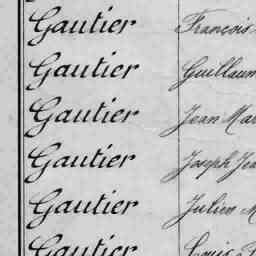 Gautier François
Gautier Guillaum
Gautier Jean Mar
Gautier Joseph Jea
Gautier Julien M
Gautier Louis